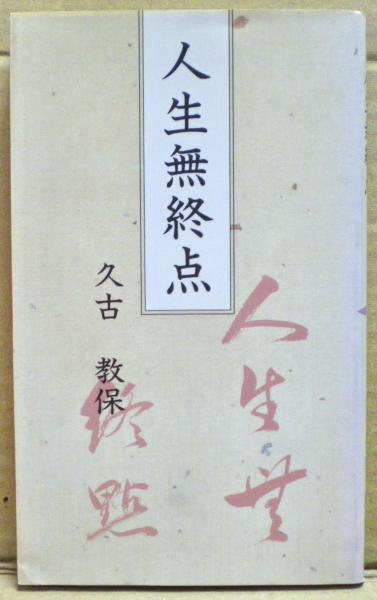 人生無終点
久古 教保
人生無
終點